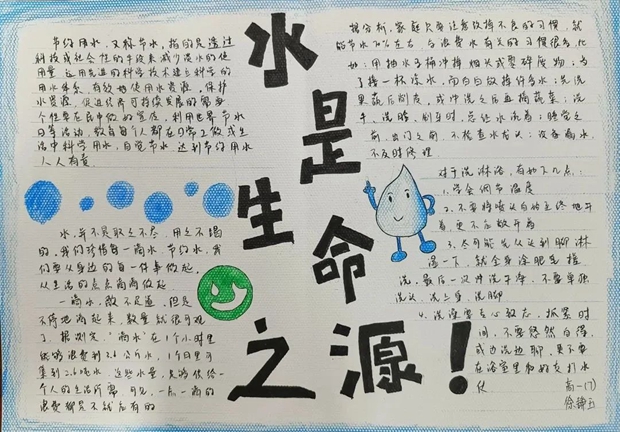 水是生命之源！
节约用水，又称节水，指的是通过
科技或社会性的手段来减少淡水的使
用量，运用先进的科学技术建立科学的
用水体系，有效地使用水资源，保护
水资源，
日等活动，教育每个人都在日常工做或生
活中科学用水，自觉节水，达到节约用水
人人有责
水，并不是取之不尽，用之不竭
的。我们珍惜每一滴水，节约水，我
们要从身边的每一件事做起，
从生活的点点滴滴做起。
一滴水，微不足道，但是
不停地滴起来，数量就很可观
了。据测定，“滴水”在1个小时里
能够浪费到3.6公斤水，1个月里可
集到2.6吨水，这些水量，足够供给一
个人的生活所需，可见，一点一滴的
浪费都是不
据分析，家庭只要注意改掉不良的习惯，就
能节水70%左右，与浪费水有关的习惯很多，比
如：用抽水马桶冲掉烟头或零碎废物；为
了接一杯凉水，而白白放掉许多水；先洗
果蔬后削皮，或冲洗之后再摘蔬菜；洗
手、洗脸、刷牙时，总让水流着；睡觉之
前、出门之前，不检查水龙头；设备漏水，
不及时修理
对于洗淋浴，有如下几点：
1.学会调节温度
2.不要将喷头的水自始至终地开
着，更不应敞开着
3.尽可能先从头到脚淋
湿一下，就全身涂肥皂搓
洗，最后一次冲洗干净，不要单独
洗头、洗上身、洗脚
4.洗澡要专心致志，抓紧时
间，不要悠然自得
或边洗边聊，更不要
在浴室里和好友打水
仗
高一(7)